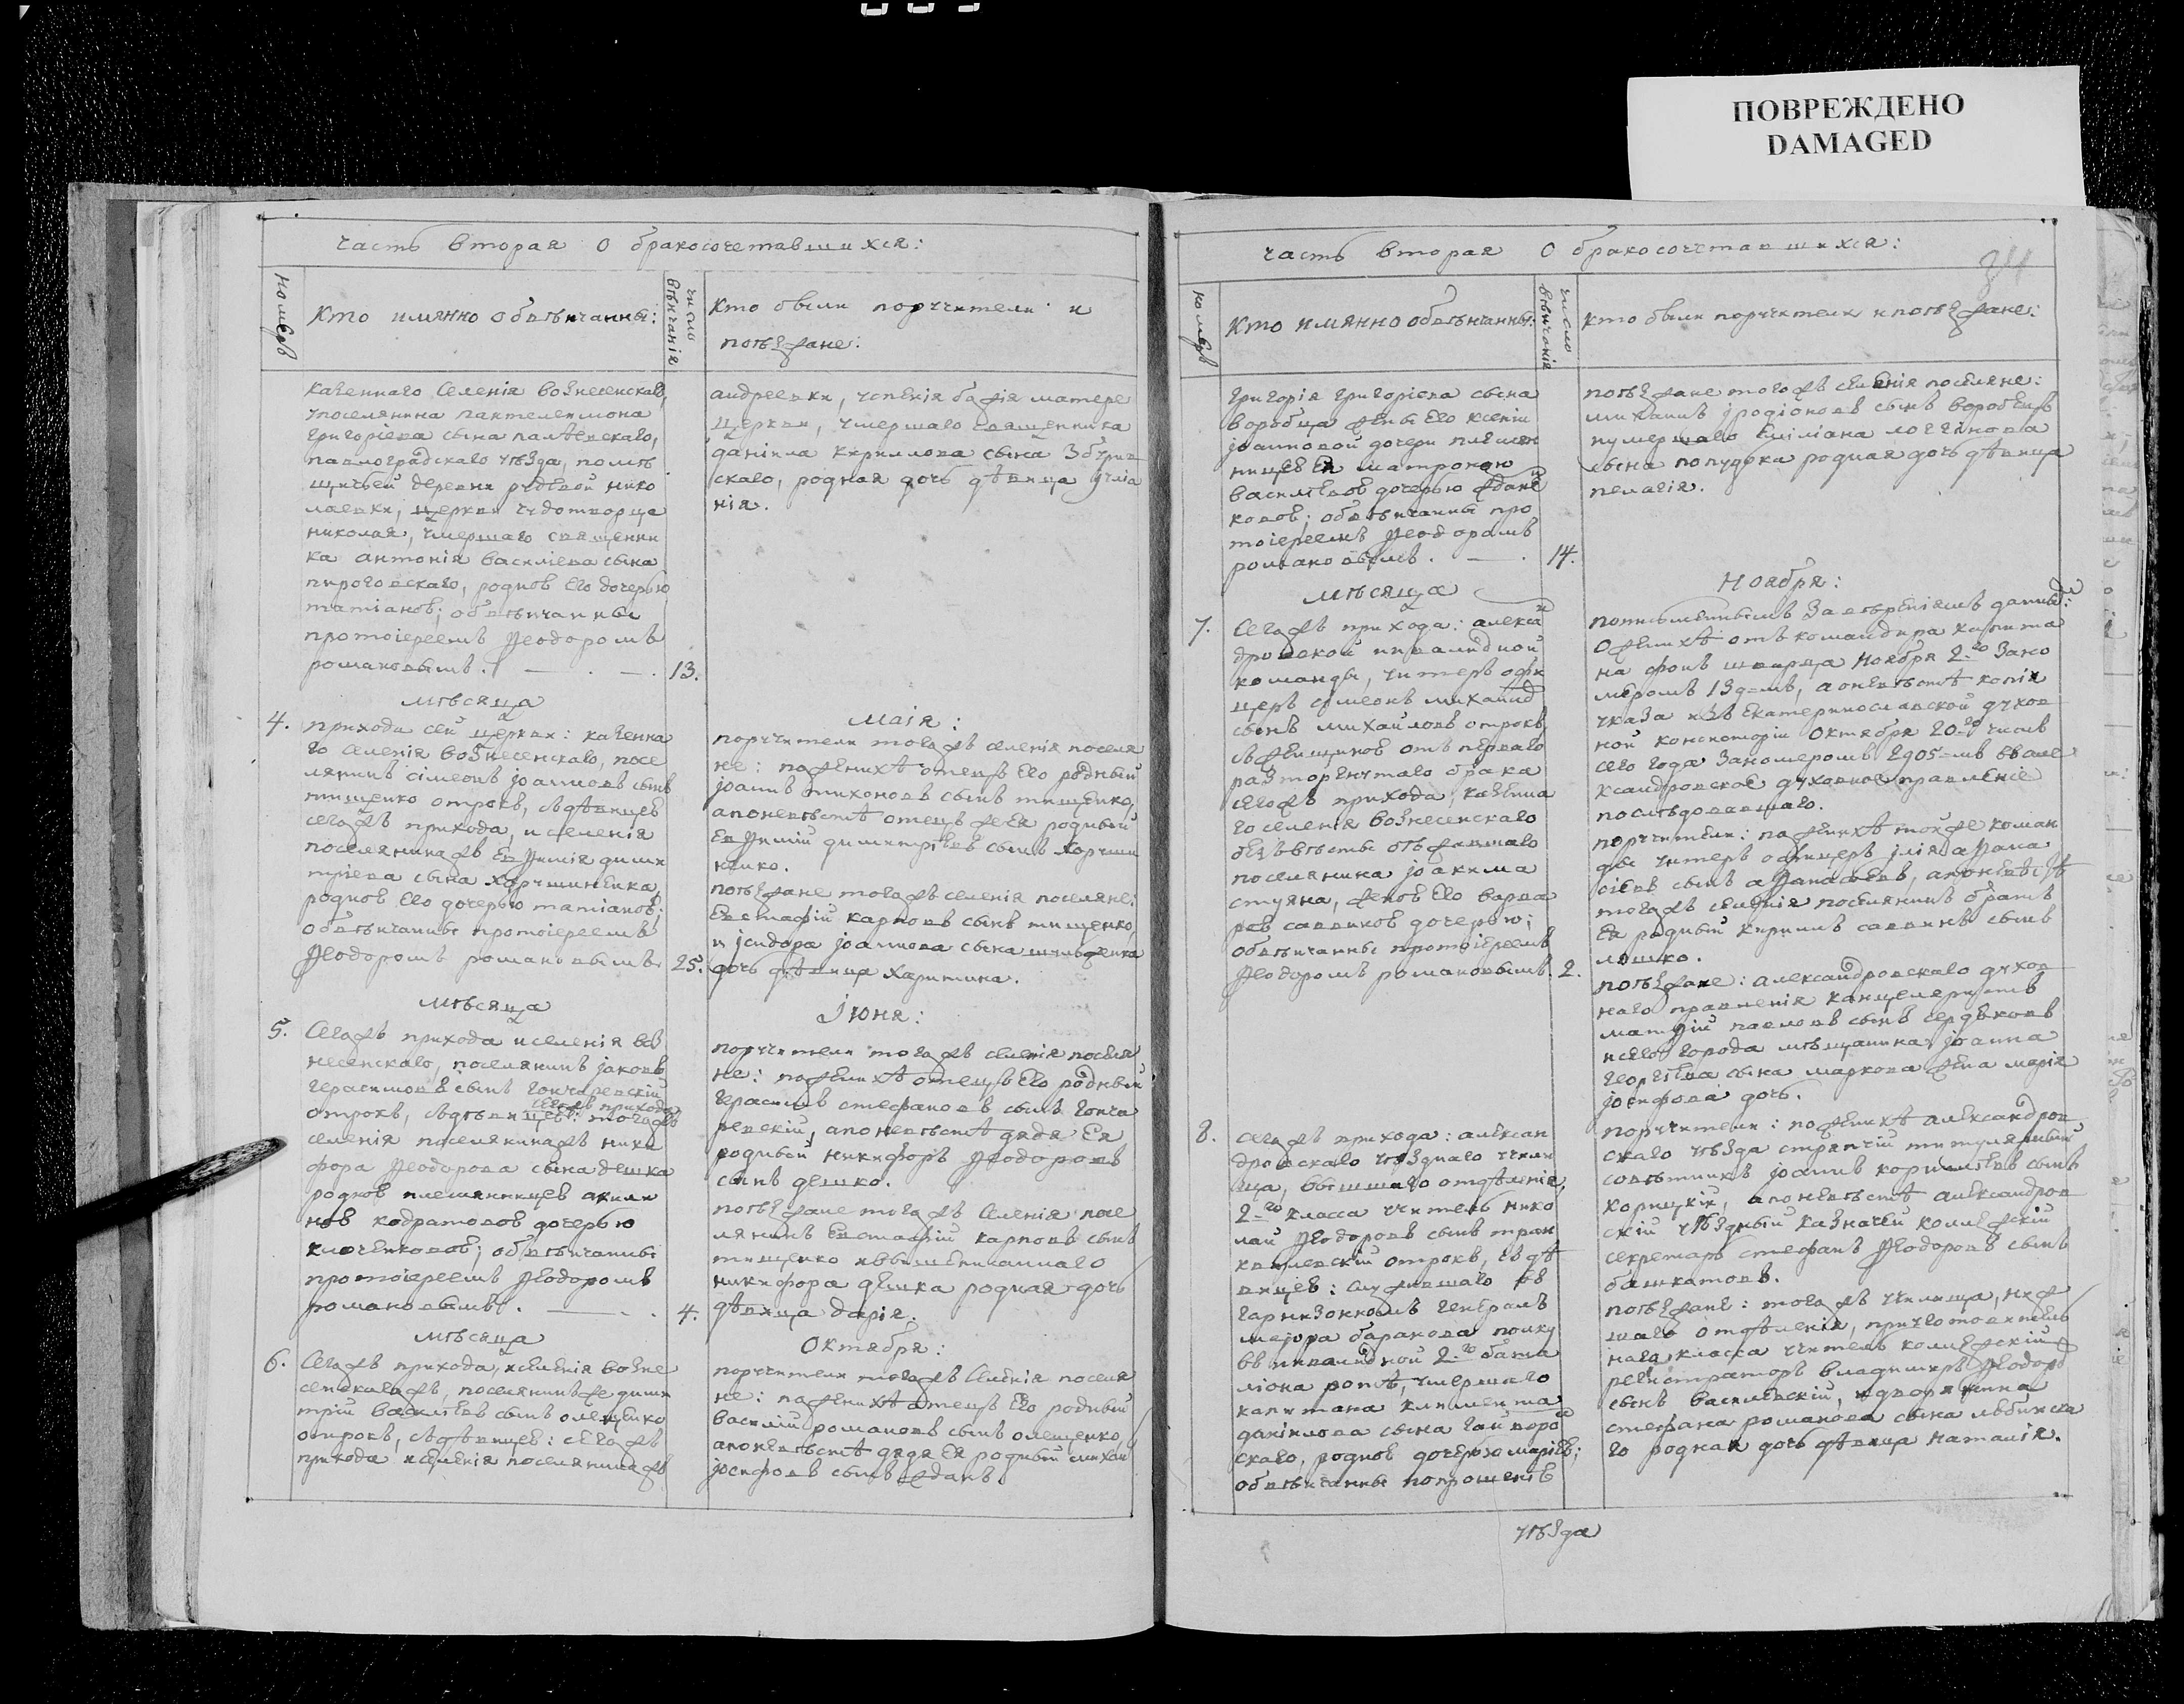 ПОВРЕЖДЕНО
DAMAGED
часть вторая о бракосочетавшихся:
номеръ
Кто имянно обвѣнчанны:
число вѣнчанія
Кто были поручители и
поѣзжане:
казеннаго селенія вознесенскаго,
упоселянина пантелеимона
григоріева сына палѣевскаго,
павлоградскаго уѣзда, помѣ
щичьей деревни рудевой нико
лаевки, церкви чудотворца
николая, умершаго священни
ка антонія василіева сына
пироговскаго, родной его дочерью
татіаной; обвѣнчанны
протоіереемъ Ѳеодоромъ
романовымъ.
13.
андреевки, успенія божія матере
церкви, умершаго священника
даніила кириллова сына
скаго, родная дочь дѣвица уліа
нія.
мѣсяца
маія:
4.
прихода сей церкви: казенна
го селенія вознесенскаго, посе
лянинъ сімеонъ іоанновъ сынъ
тищенко отрокъ, съдѣвицей
сегожъ прихода, и селенія
поселянинажъ евѳимія дими
тріева сына харушиненка,
родной его дочерью татіаной;
обвѣнчанны протоіереемъ
Ѳеодоромъ романовымъ.
25.
порччители тогожъ селенія поселя
не: поженихѣ отецъ его родный
іоаннъ тихоновъ сынъ тищенко,
апоневѣстѣ отецъ жея родный
евѳимій димитріевъ сынъ харуши
ненко.
поѣзжане тогожъ селенія поселяне:
евстафій карповъ сынъ тищенко,
и ісидора іоаннова сына
дочь дѣвица харитина.
мѣсяца
Іюня:
5.
Сегожъ прихода иселенія воз
несенскаго, поселянинъ іаковъ
герасимовъ сынъ гончаревскій
отрокъ, съдѣвицей: сегожъ прихода тогожъ
селенія поселянинажъ ники
фора Ѳеодорова сына дешка
родной племянницей акили
ной кодратовой дочерью
ключниковой; обвѣнчанны
протоіереемъ Ѳеодоромъ
романовымъ.
4.
порччители тогожъ селенія поселя
не: поженихѣ отецъ его родный
герасимъ стефановъ сынъ гонча
ревскій, апоневѣстѣ дядя ея
родный никифоръ Ѳеодоровъ
сынъ дешко.
поѣзжане тогожъ селенія посе
лянинъ евстафій карповъ сынъ
тищенко ивышеписаннаго
никифора дешка родная дочь
дѣвица дарія.
мѣсяца
Октября:
6.
Сегожъ прихода, иселенія возне
сенскагожъ, поселянинъже дими
трій василіевъ сынъ олещенко
отрокъ, съдѣвицей: сегожъ
прихода иселенія поселянинажъ
порччители тогожъ селенія поселя
не: поженихѣ отецъ его родный
василій романовъ сынъ олещенко,
апоневѣстѣ дядя ея родный михаи
іосифовъ сынъ жданъ.
часть вторая о бракосочетавшихся:
34
номеръ
Кто имянно обвѣнчанны:
число вѣнчанія
Кто были порччители и поѣзжане:
григорія григоріева сына
воробца жены его ксеніи
іоанновой дочери племян
ницей ея матроною
василіевой дочерью ждани
ковой; обвѣнчанны про
тоіереемъ Ѳеодоромъ
романовымъ.
14.
поѣзжане тогожъ селенія поселяне:
михаилъ іродіоновъ сынъ воробецъ
иумершаго еміліана логгинова
сына попудрка родная дочь дѣвица
пелагія.
мѣсяца
Ноября:
7.
Сегожъ прихода: алексан
дровской инвалидной
команды, унтеръ офи
церъ сумеонъ михаилъ
сынъ михайловъ отрокъ,
съженщиной отъ перваго
разторгнутаго брака
сегожъ прихода, казенна
го селенія вознесенскаго
безъвѣсты отбывшаго
поселянина іоакима
стуяна, женой его варва
рой саввиной дочерью;
обвѣнчанны протоіереемъ
Ѳеодоромъ романовымъ.
2.
пописьменнымъ завѣреніямъ даннымъ:
оженихѣ отъ командира капита
на фонъ шварца Ноября 2-го зано
меромъ 139-мъ, аоневѣстѣ копія
указа изъ Екатеринославской духов
ной консисторіи Октября 20-го числъ
сего года заномеромъ 2905-мъ въале
ксандровское духовное правленіе
послѣдовавшаго.
порччители: поженихѣ тойже коман
ды унтеръ офицеръ ілія аѳана
сіевъ сынъ аѳанасьевъ, апоневѣстѣ
тогожъ селенія поселянинъ братъ
ея родный кириллъ саввинъ сынъ
ляшко.
поѣзжане: александровскаго духов
наго правленія канцеляристъ
матѳій павловъ сынъ сердюковъ
исего города мѣщанина іоанна
георгіева сына маркова жена марія
іосифова дочь.
8.
Сегожъ прихода: алексан
дровскаго уѣзднаго учили
ща, вышшаго отдѣленія,
2-го класса учитель нико
лай Ѳеодоровъ сынъ тран
квилевскій отрокъ, съдѣ
вицей: служившаго въ
гарнизонномъ генералъ
маіора баранова полку
въ инвалидной 2-го бата
ліона ротѣ, умершаго
капитана климента
даніилова сына гайворон
скаго, родной дочерью маріей;
обвѣнчанны попрошеніе
порччители: поженихѣ александров
скаго уѣзда стряпчій титулярный
совѣтникъ іоаннъ корниліевъ сынъ
корицкій, апоневѣстѣ александров
скій уѣздный казначей колежскій
секретарь стефанъ Ѳеодоровъ сынъ
башкатовъ.
поѣзжане: тогожъ училища, ниж
шаго отдѣленія, приготовитель
наго класса учитель колежскій
регистраторъ владимиръ Ѳеодор
сынъ василевскій, идворянина
стефана романова сына любинска
го родная дочь дѣвица наталія.
уѣзда